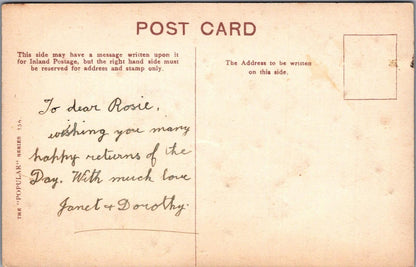 POST CARD
This side may have a message written upon it
for Inland Postage, but the right hand side must
be reserved for address and stamp only.
The Address to be written
on this side.
To dear Rosie,
wishing you many
happy returns of the
Day. With much love
Janet & Dorothy.
THE "POPULAR" SERIES